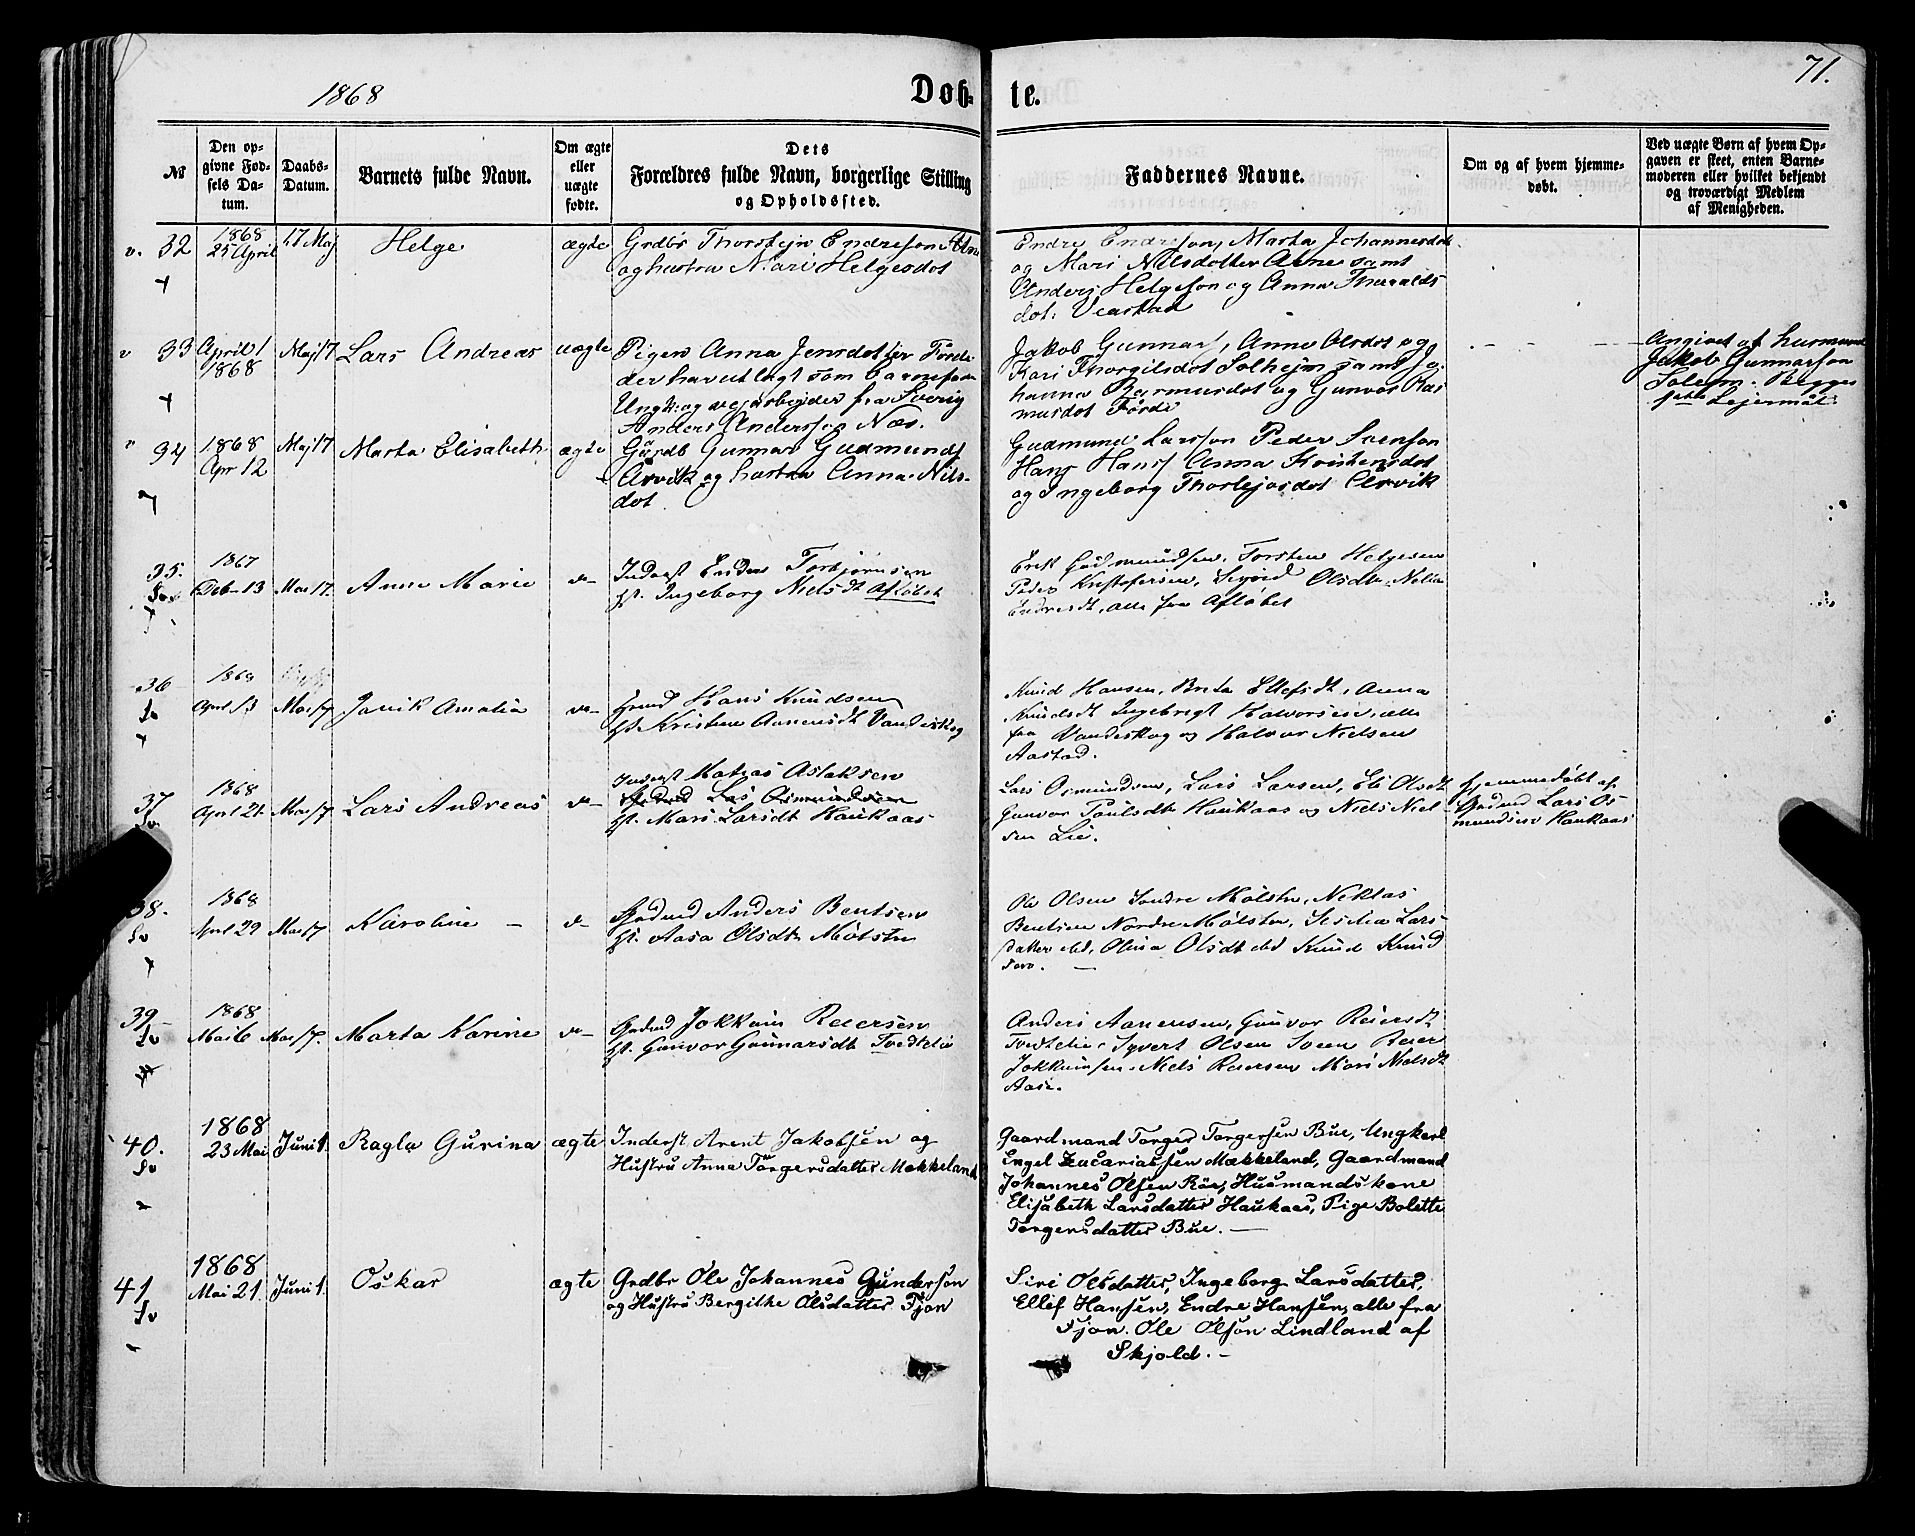 1868
Døb-
te.
71.
№
Den op-
givne Fød-
sels Da-
tum.
Daabs-
Datum.
Barnets fulde Navn.
Om ægte
eller
uægte
fødte.
Dets
Forældres fulde Navn, borgerlige Stilling
og Opholdssted.
Faddernes Navne.
Om og af hvem hjemme-
døbt.
Ved uægte Børn af hvem Op-
gaven er skeet, enten Barne-
moderen eller hvilket bekjendt
og troværdigt Medlem
af Menigheden.
v. 32
1868
25 April
17 Maj
Helge
ægte
Grdbr Thorstejn Endreson
og hustru Mari Helgesdot
Endre Endreson, Marta Johannesdot
og Mari Nilsdotter Arne samt
Anders Helgeson og Anna Thoralds
dot:
v 33
April 1
1868
Maj 17
Lars Andreas
uægte
Pigen Anna Jensdotter Førde
der har utlagt som barnefar
Ungk: og vejarbejder fra Sverig
Anders Anderson Næs.
Jakob Gunnars, Anna Olsdot og
Kari Thorgilsdot Solhejm samt Jo-
hanna Rasmusdot og Gunvor Ras
musdot Førde
Angivet af husmand
Jakob Gunnarson
Solem. Begges
1ste Lejermål.
v 34
1868
Apr 12
Maj 17
Marta Elisabeth
ægte
Gårdb Gunnar Gudmunds
Arvik og hustru Anna Nils-
dot.
Gudmund Larsson Peder Svenson
Hans Hans Anna Kristensdot
og Ingeborg Thorlejvsdot Arvik
35.
Sv
1867
Feb 13
Mai 17.
Anne Marie
Inderst Endre Torbjørnsen
H. Ingeborg Nielsdt Afløbet
Erik Gudmundsen, Torsten Helgesen
Peder Kristofersen, Sigrid Olsdtr
Endresdt, alle fra Afløbet
36
Sv
1868
April 13
Mai 17
Janik Amalia
Grmd Hans Knudsen
H. Kristine Aanensdt Vandeskog
Knud Hansen, Brita Ellefsdt, Anna
Knudsdt Ingebrigt Halvorsen, alle
fra Vandeskog og Halvor Nielsen
Aastad.
37
Sv.
1868
Apl 21.
Mai 17
Lars Andreas
Inderst Matias Aslaksen
Grdmd Lars Osmundsen
H. Mari Larsdt Haukaas
Lars Osmundsen, Lars Larsen, Eli Olsdt
Gunvor Poulsdt Haukaas og Niels Niel
sen Lie.
Hjemmedøbt af
Grdmd Lars Os-
mundsen Haukaas
38.
Sv
1868
April 29
Mai 17
Karoline
Grdmd Anders Bentsen
H. Aasa Olsdtr Mølstre
Ole Olsen Søndre Mølstre, Niklas
Bentsen Nordre Mølstre, Lars-
datter ibd, Olina Olsdt ibd Knud Knud
sen.
39
Sv
1868
Mai 6
Mai 17.
Marta Karine
Grdmd Jokkum Reiersen
H. Gunvor Gunnarsdt Tvedtelie
Anders Aanensen, Gunvor Reiersdt
Tvedtelie Syvert Olsen Sveen Reier
Jokkumsen Niels Reiersen Mari Nielsdt
Aase.
40.
Sv
1868
23 Mai
Juni 1.
Ragla Gurina
ægte
Inderst Arent Jakobsen og
Hustru Anna Torgersdatter Mækkeland
Gaardmand Torger Torgersen Bue, Ungkarl
Engel Zacariassen Mækkeland, Gaardmand
Johannes Olsen Röe, Husmandskone
Elisabeth Larsdatter Haukaas, Pige Bolette
Torgersdatter Bue.
41
Sv
1868
Mai 21.
Juni 1.
Oskar
ægte
Grdbr Ole Johannes Gunderson
og Hustru Bergithe Olsdatter Fjon
Siri Olsdatter, Ingeborg Larsdatter,
Ellef Hansen, Endre Hansen, alle fra
Fjon. Ole Olson Lindland af
Skjold.